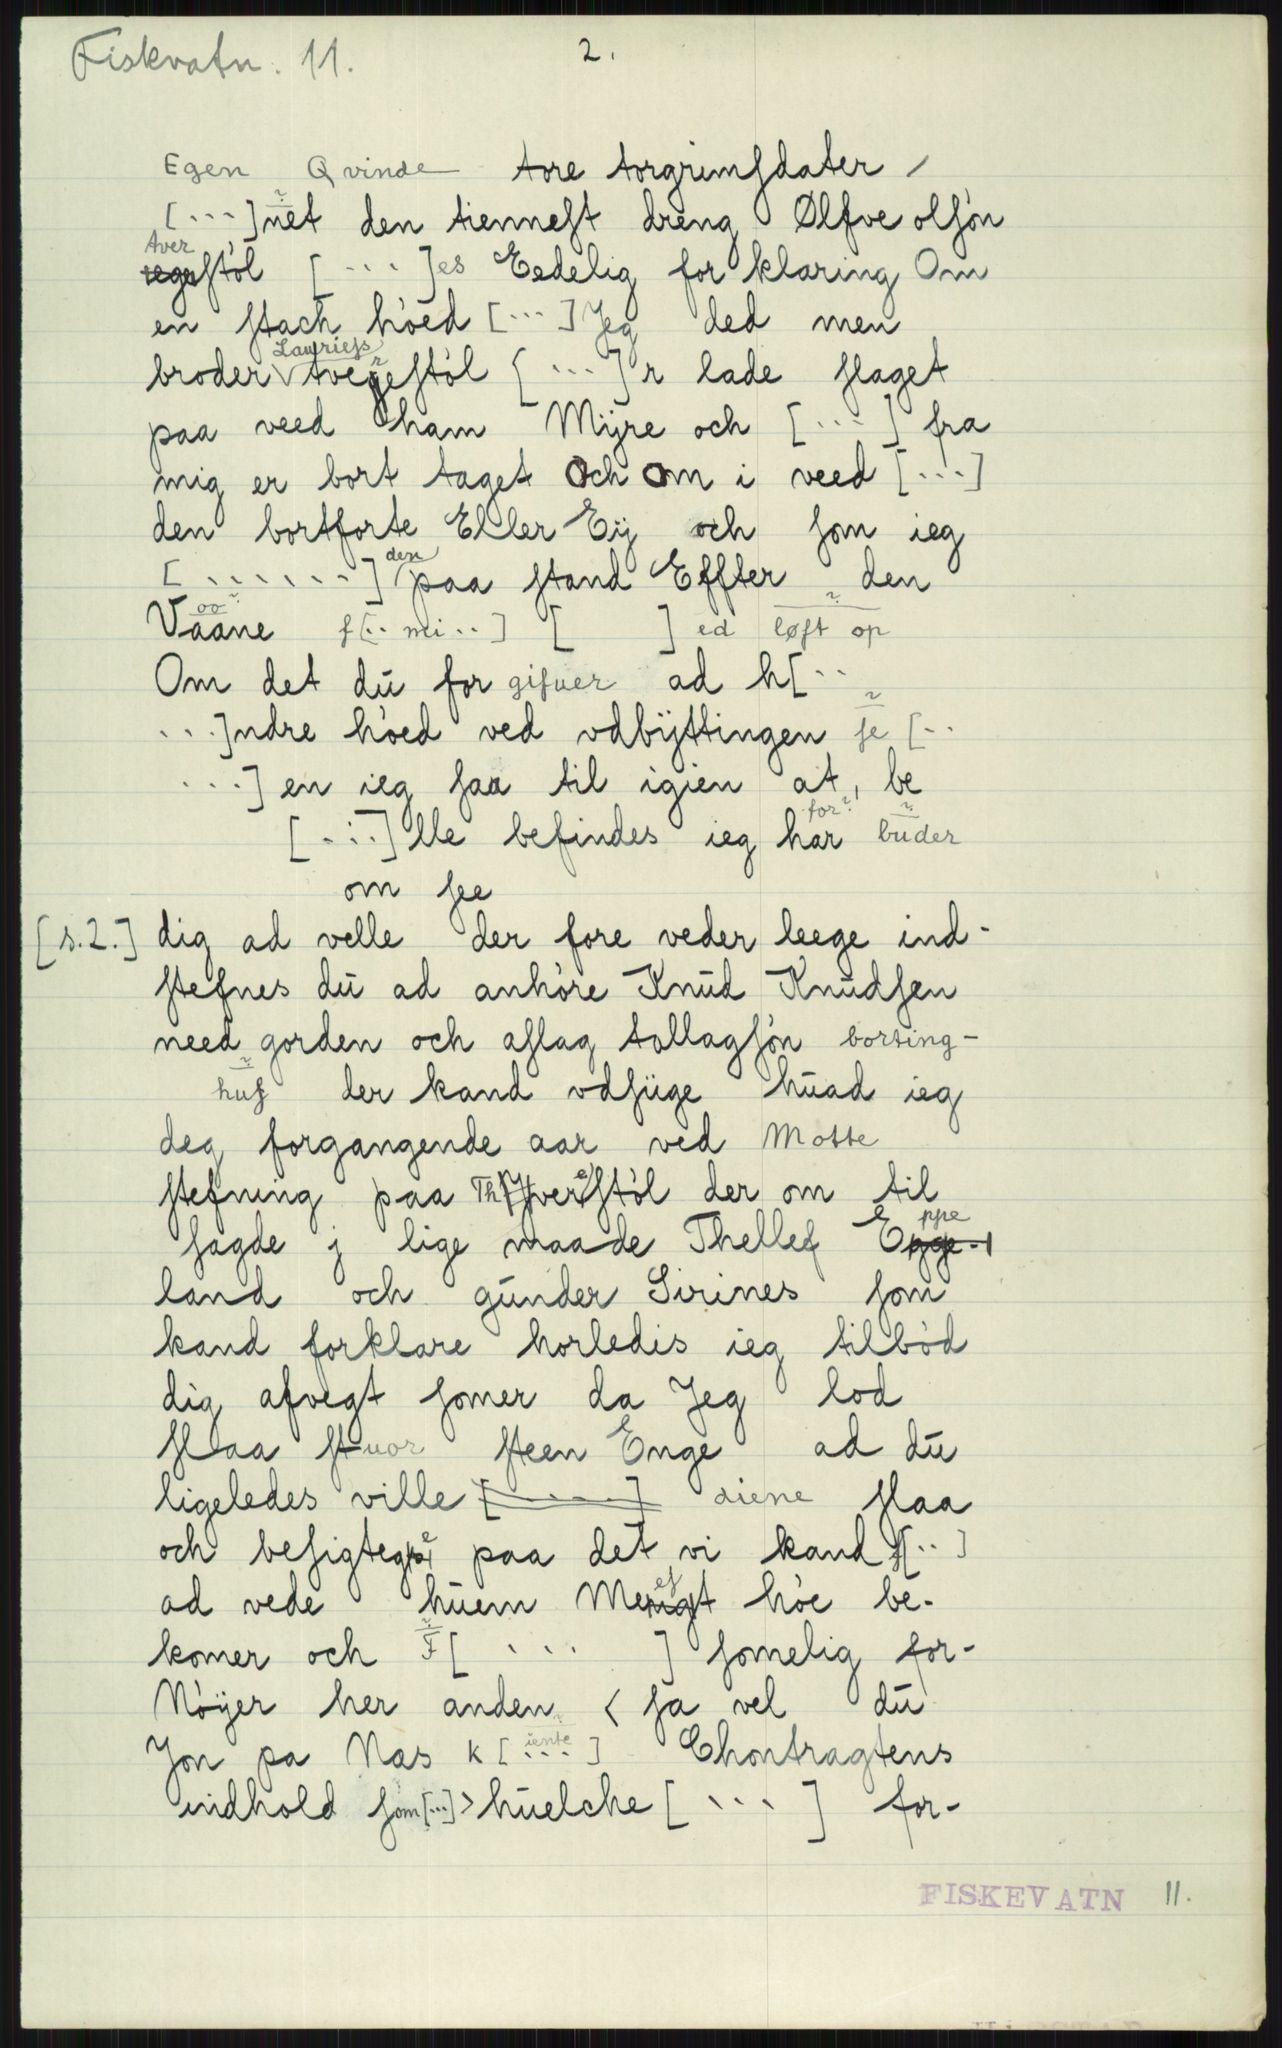 Fiskvatn. 11.
2.
Egen Qvinde tore torgrimsdater /
[...]net den tiennest dreng Ølfve olsøn
Aver støl [...]es Eedelig for klaring Om
en stach høed [...] Jeg ded men
broder Lauriess tverestøl [...]r lade slaget
paa veed ham Mijre och [...] fra
mig er bort taget Och Om i veed [...]
den bortforte Eller Eij och som ieg
[......] den paa stand Effter den
Vaane f[.. mi..] [ ] ed løft op
Om det du for gifuer ad h[..
...]ndre høed ved vdbÿttingen se [..
...] en ieg saa til igien at, be
[...]lle befindes ieg har for? buder
om see
[s.2.] dig ad velle der fore veder leege ind-
stefnes du ad anhøre Knud Knudsen
need gorden och aslag tollagsøn borting-
hus der kand vdsüge huad ieg
deg forgangende aar ved Motte
stefning paa Th verestøl der om til
sagde j lige maade Thellef Eppe-
land och gunder Sirines som
kand forklare horledis ieg tilbød
dig afvegt somer da Jeg lod
slaa stuor steen Enge ad du
ligeledes ville [.....] diene slaa
och besigtege paa det vi kand f[..]
ad vede huem Mest høe be-
komer och F[ ... ] somelig for-
Nøyer her anden < sa vel du
Jon pa Næs k[iente] Chontragtens
indhold som[...]> huelche [...] for-
FISKEVATN 11.